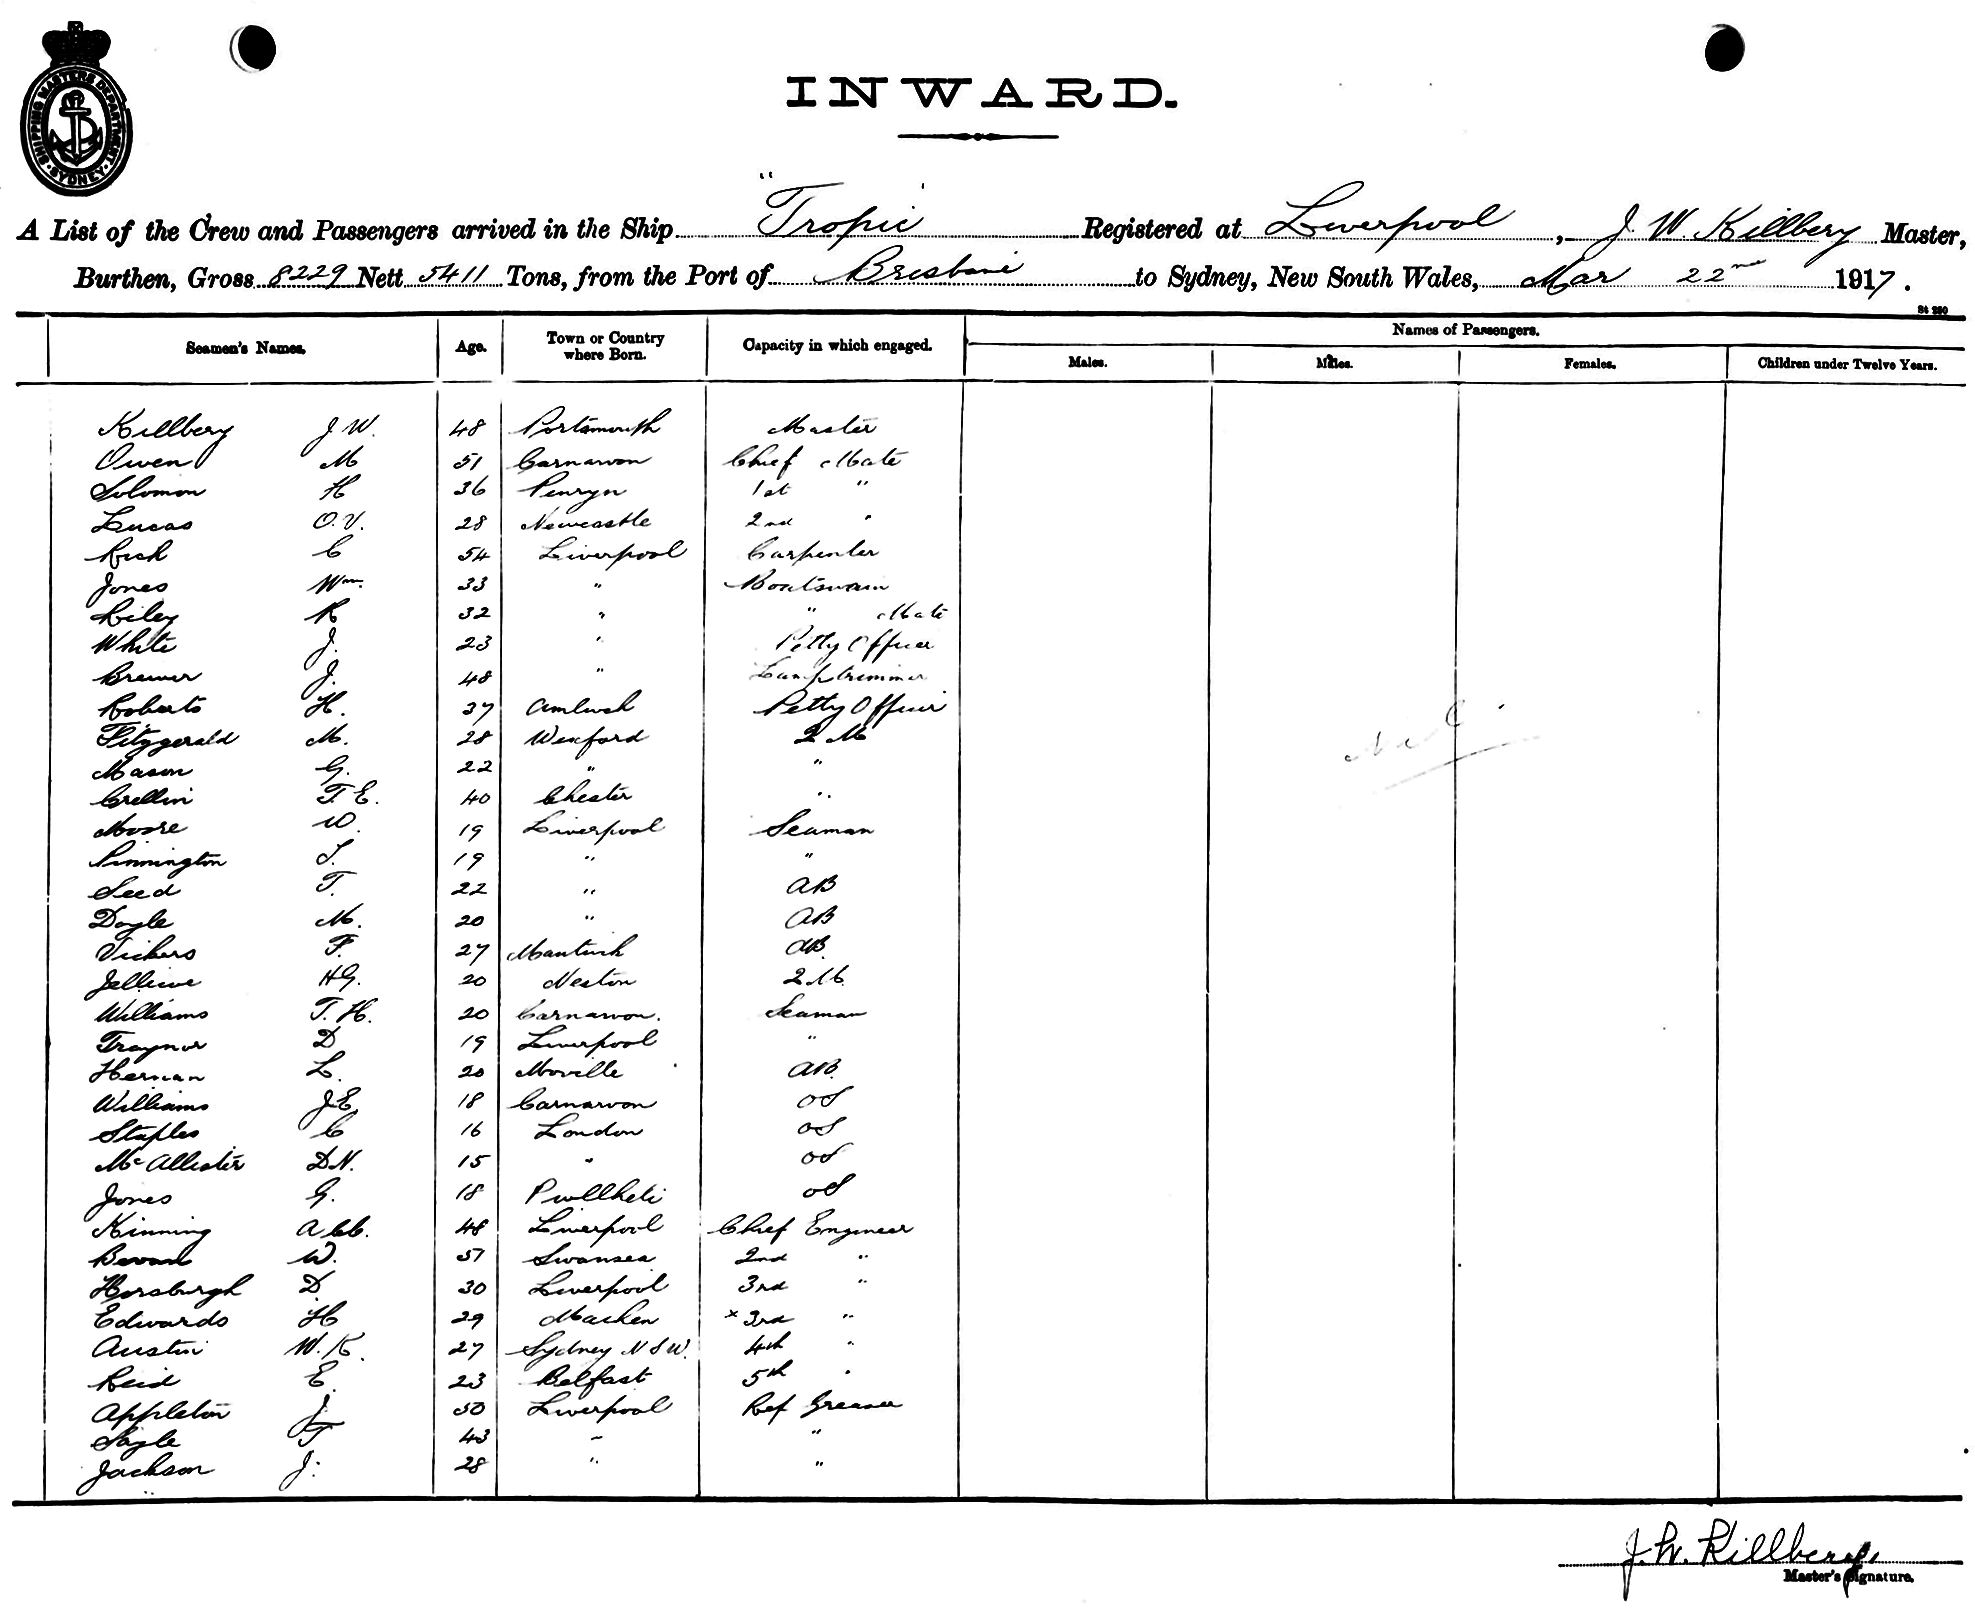 SHIPPING MASTERS DEPARTMENT · SYDNEY ·
INWARD.
A List of the Crew and Passengers arrived in the Ship "Tropic" Registered at Liverpool, J. W. Killbery Master,
Burthen, Gross 8229 Nett 5411 Tons, from the Port of Brisbane to Sydney, New South Wales, Mar 22nd 1917.
St 220
Seamen's Names. Age. Town or Country where Born. Capacity in which engaged. Names of Passengers.
Males. Males. Females. Children under Twelve Years.
Killbery J W. 48 Portsmouth Master
Owen M 51 Carnarvon Chief Mate
Solomon H 36 Penryn 1st "
Lucas O.V. 28 Newcastle 2nd "
Rich C 54 Liverpool Carpenter
Jones Wm. 33 " Boatswain
Riley R 32 " " Mate
White J. 23 " Petty Officer
Brewer J. 48 " Lamptrimmer
Roberts H. 37 Amlwch Petty Officer
Fitzgerald M. 28 Wexford 2 M
Mason G. 22 " "
Crellin T. E. 40 Chester "
Moore W. 19 Liverpool Seaman
Pinnington T. 19 " "
Seed T. 22 " AB
Doyle M. 20 " AB
Vickers F. 27 AB.
H G. 20 Neston 2 M.
Williams T. H. 20 Carnarvon. Seaman
Traynor D 19 Liverpool "
Hernan L. 20 Moville AB.
Williams J E 18 Carnarvon OS
Staples C 16 London OS
McAllister D N. 15 " OS
Jones G. 18 Pwllheli OS
Kinning 48 Liverpool Chief Engineer
Bevan W. 51 Swansea 2nd "
Horsburgh D. 30 Liverpool 3rd "
Edwards H 29 Machen x 3rd "
Austin W. K. 27 Sydney N S W. 4th "
Reid E. 23 Belfast 5th "
Appleton J. 50 Liverpool Ref Greaser
Sayle T 43 " "
Jackson J. 28 " "
Nil.
J. W. Killbery.
Master's Signature.